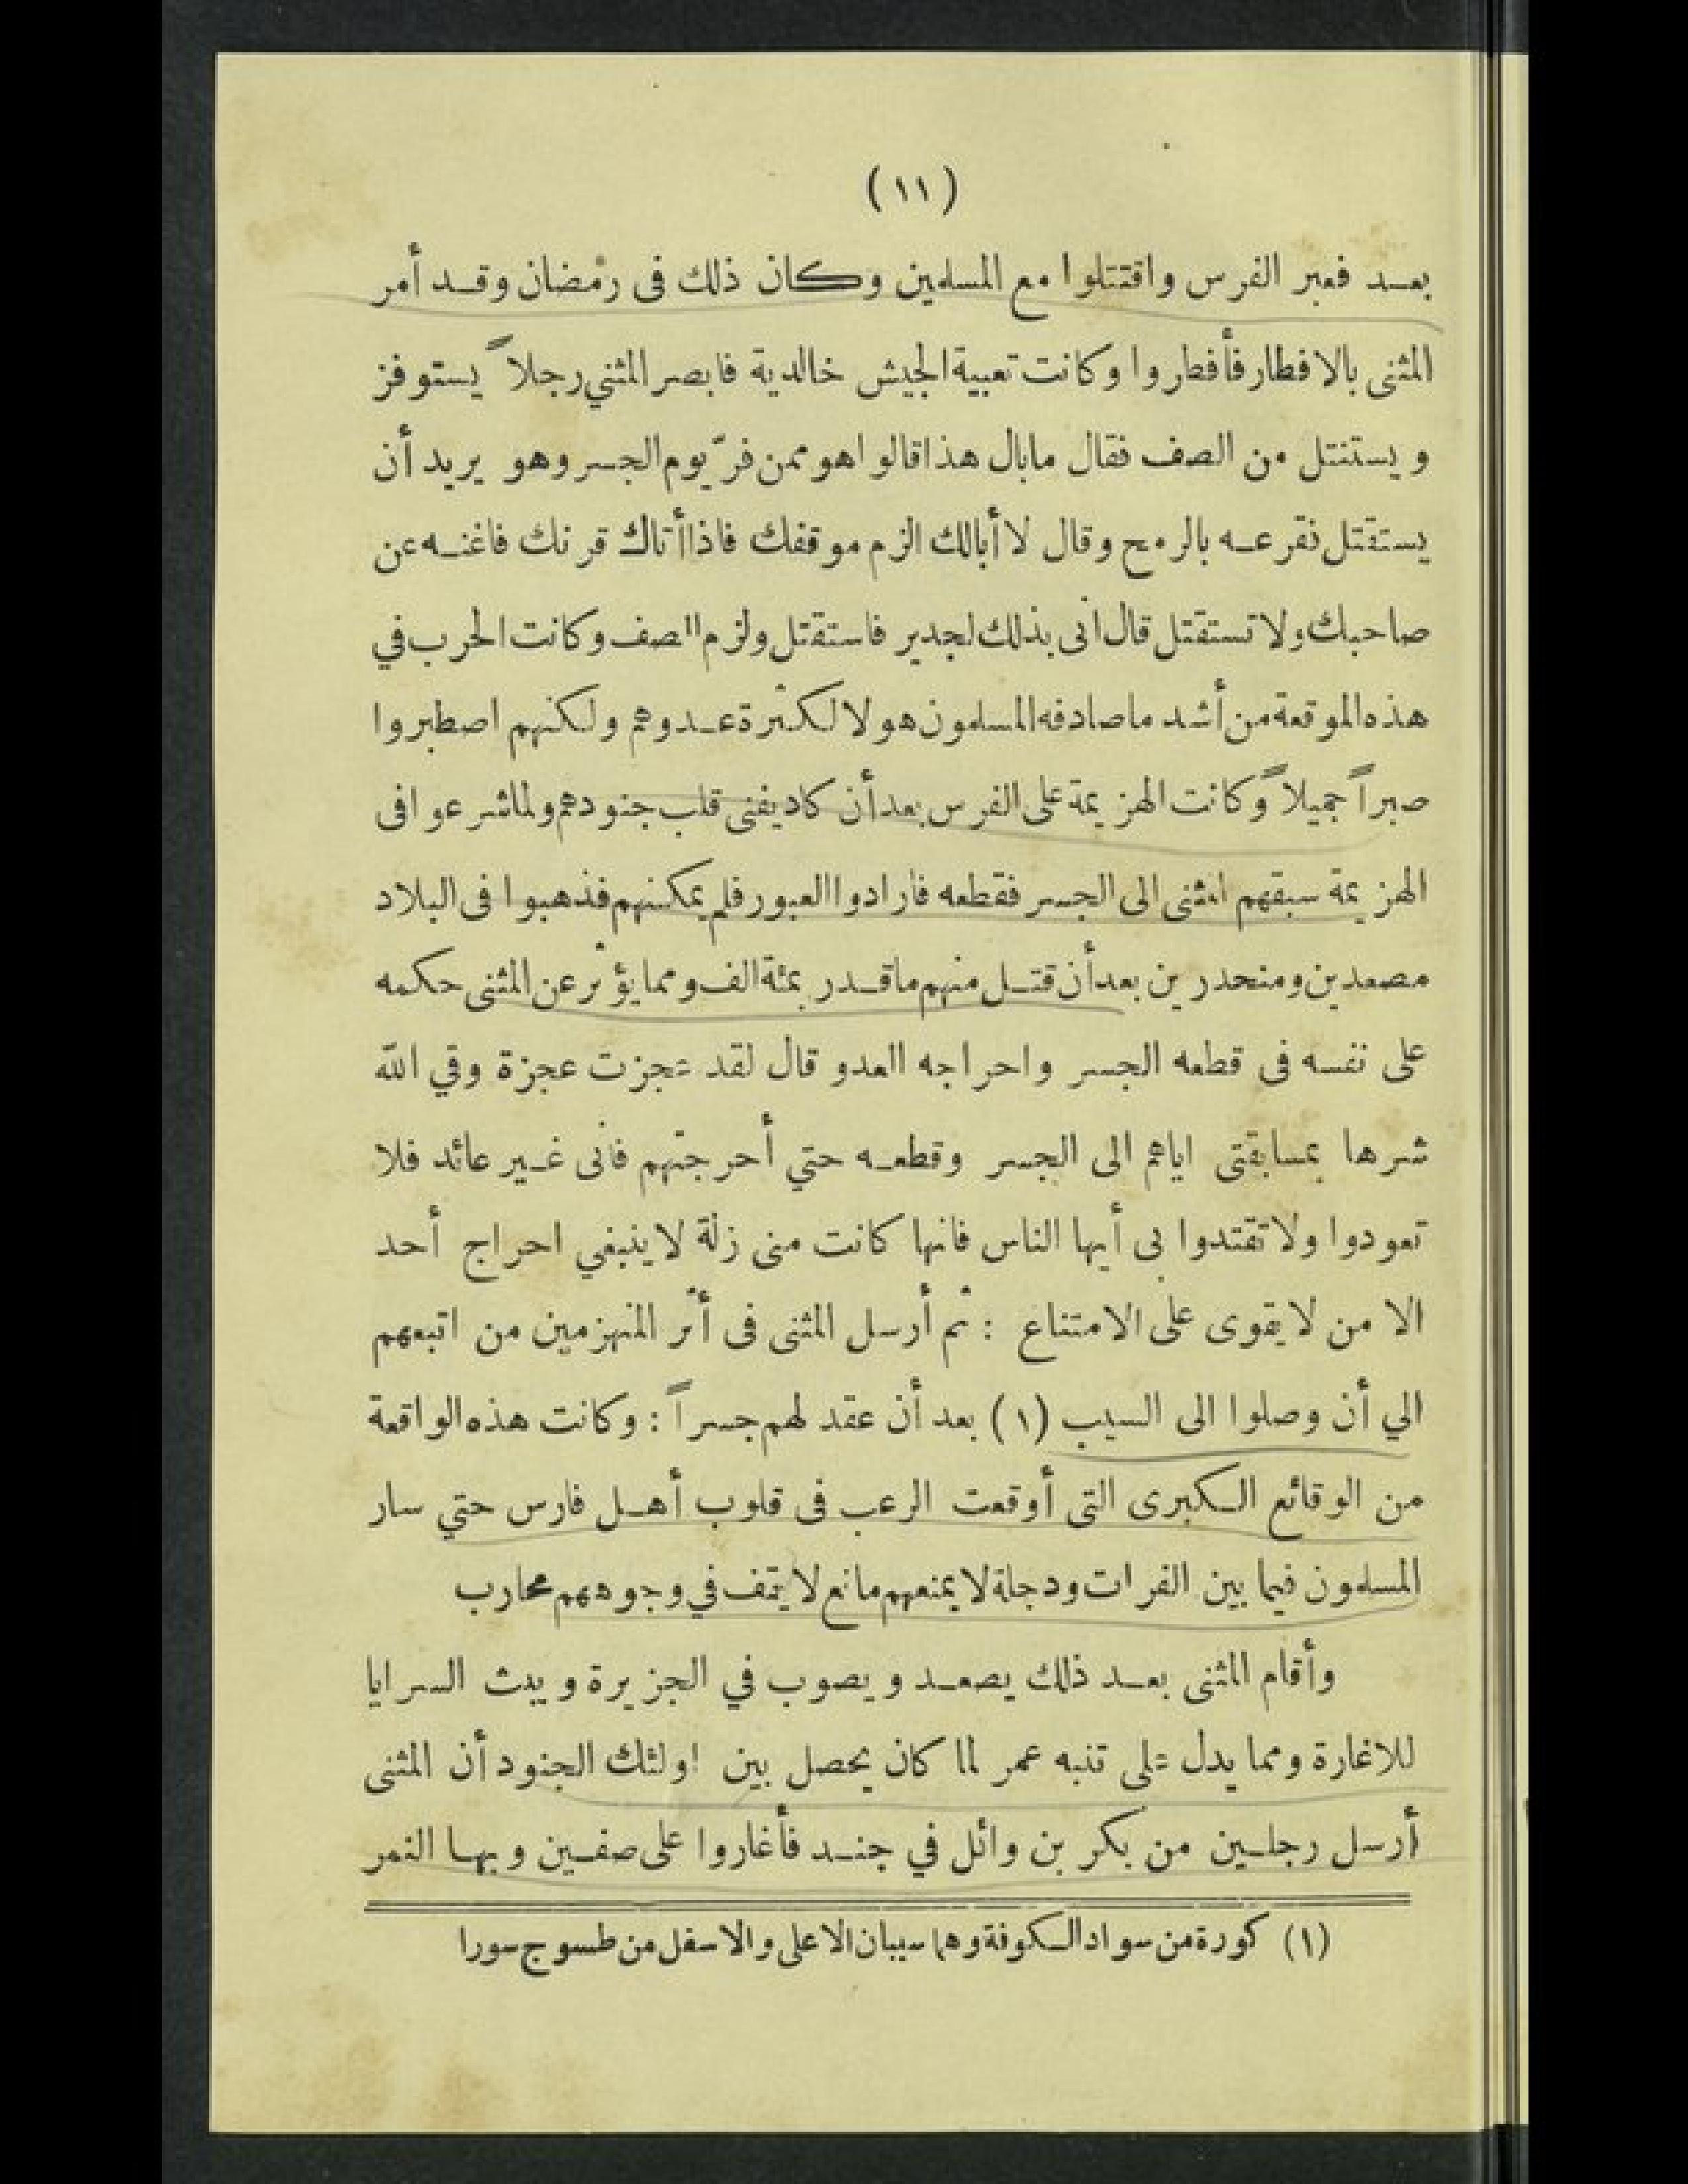 (١١)
بعد فعبر الفرس واقتتلوا مع المسلمين وكان ذلك فى رمضان وقد أمر
المثنى بالافطار فأفطروا وكانت تعبية الجيش خالدية فابصر المثني رجلاً يستوفز
ويستنتل من الصف فقال مابال هذا قالوا هو ممن فرّ يوم الجسر وهو يريد أن
يستقتل فقرعه بالرمح وقال لا أبالك الزم موقفك فاذا أتاك قرنك فاغنه عن
صاحبك ولا تستقتل قال انى بذلك لجدير فاستقتل ولزم الصف وكانت الحرب في
هذه الموقعة من أشد ماصادفه المسلمون هولا لكثرة عدوهم ولكنهم اصطبروا
صبراً جميلاً وكانت الهزيمة على الفرس بعد أن كاد يفنى قلب جنودهم ولما شرعوا فى
الهزيمة سبقهم المثنى الى الجسر فقطعه فارادوا العبور فلم يمكنهم فذهبوا فى البلاد
مصعدين ومنحدرين بعد أن قتل منهم ماقدر بمئة الف ومما يؤثر عن المثنى حكمه
على نفسه فى قطعه الجسر واحراجه العدو قال لقد عجزت عجزة وقي الله
شرها بمسابقتى اياهم الى الجسر وقطعه حتي أحرجتهم فانى غير عائد فلا
تعودوا ولا تقتدوا بى أيها الناس فانها كانت منى زلة لاينبغي احراج أحد
الا من لا يقوى على الامتناع : ثم أرسل المثنى فى أثر المنهزمين من اتبعهم
الي أن وصلوا الى السيب (١) بعد أن عقد لهم جسراً : وكانت هذه الواقعة
من الوقائع الكبرى التى أوقعت الرعب فى قلوب أهل فارس حتي سار
المسلمون فيما بين الفرات ودجلة لا يمنعهم مانع لا يقف في وجوههم محارب
وأقام المثنى بعد ذلك يصعد ويصوب في الجزيرة ويبث السرايا
للاغارة ومما يدل على تنبه عمر لما كان يحصل بين اولئك الجنود أن المثنى
أرسل رجلين من بكر بن وائل في جند فأغاروا على صفين وبها النمر
(١) كورة من سواد الكوفة وهما سيبان الاعلى والاسفل من طسوج سورا